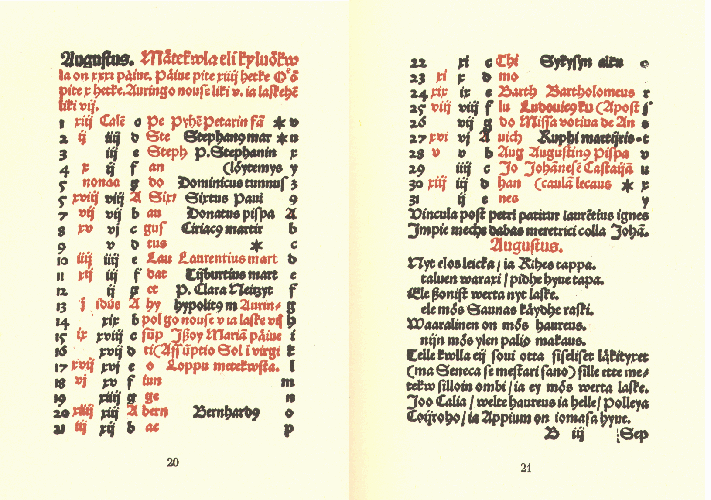 Augustus. Mätekwla eli kyluökw
la on xxxi päiue. Päiue pite xiiij hetke Oö
pite x hetke. Auringo nouse liki v. ia laskehe
liki vij.
1 xiij Cale c Pe Pyhe Petarin fä * v
2 ij iiij d Ste Stephanꝰ mar * u
3 iij e Steph P. Stephanin x
4 x ij f an (löytemys y
5 nonas g do Dominicus tunnus 3
5 xviij viij A Sixt Sixtus Paui 9
7 vij vij b an Donatus pispa A
8 xv vj c gus Ciriacꝰ martir b
9 v d tus * c
10 iiij iiij e Lau Laurentius mart d
11 xij iij f dat Tijburtius mart e
12 ij g et P. Clara Neitzyt f
13 j idus A hy hypolitꝰ m Aurin- g
14 xix b pol go nouse v ia laske vij h
15 ix xviij c sup Ißoy Marian päiue i
16 xvij d ti (Assuptio Sol i virgi k
17 xvij xvj e o Loppu metekwsta. l
18 vj xv f iun m
19 xiiij g ge n
20 xiiij xiij A bern Bernhardꝰ o
21 iij xij b ae p
20
22 xi c Thi Sykysyn alku
23 xi x d mo
24 xix ix e Barth Bartholomeus r
25 viij viij f lu Ludouicꝰ ku (Apost ſ
26 vij g do Missa votiua de An s
27 xvi vj A uich Ruphi martijris- t
28 v v b Aug Augustinꝰ Pispa v
29 iiij c Jo Johänese Castaijä u
30 xiij iij d han (caulä leicaus * x
31 ij e nes y
Vincula post petri patitur lauretius ignes
Impie mechs dabas meretrici colla Johä.
Augustus.
Nyt elos leicka / ia Rihes tappa.
taluen waraxi / pidhe hyue tapa.
Ele ßonist werta nyt laske.
ele mös Saunas käydhe raski.
Waaralinen on mös haureus.
nijn mös ylen palio makaus.
Telle kwlla eij soui otta siseliset läkityxet
(ma Seneca se mestari sano) sille ette me-
tekw silloin ombi / ia ey mös werta laske.
Joo Calia / welte haureus ia helle / Polleya
Coijroho / ia Appium on iomasa hyue.
B iij Sep
21